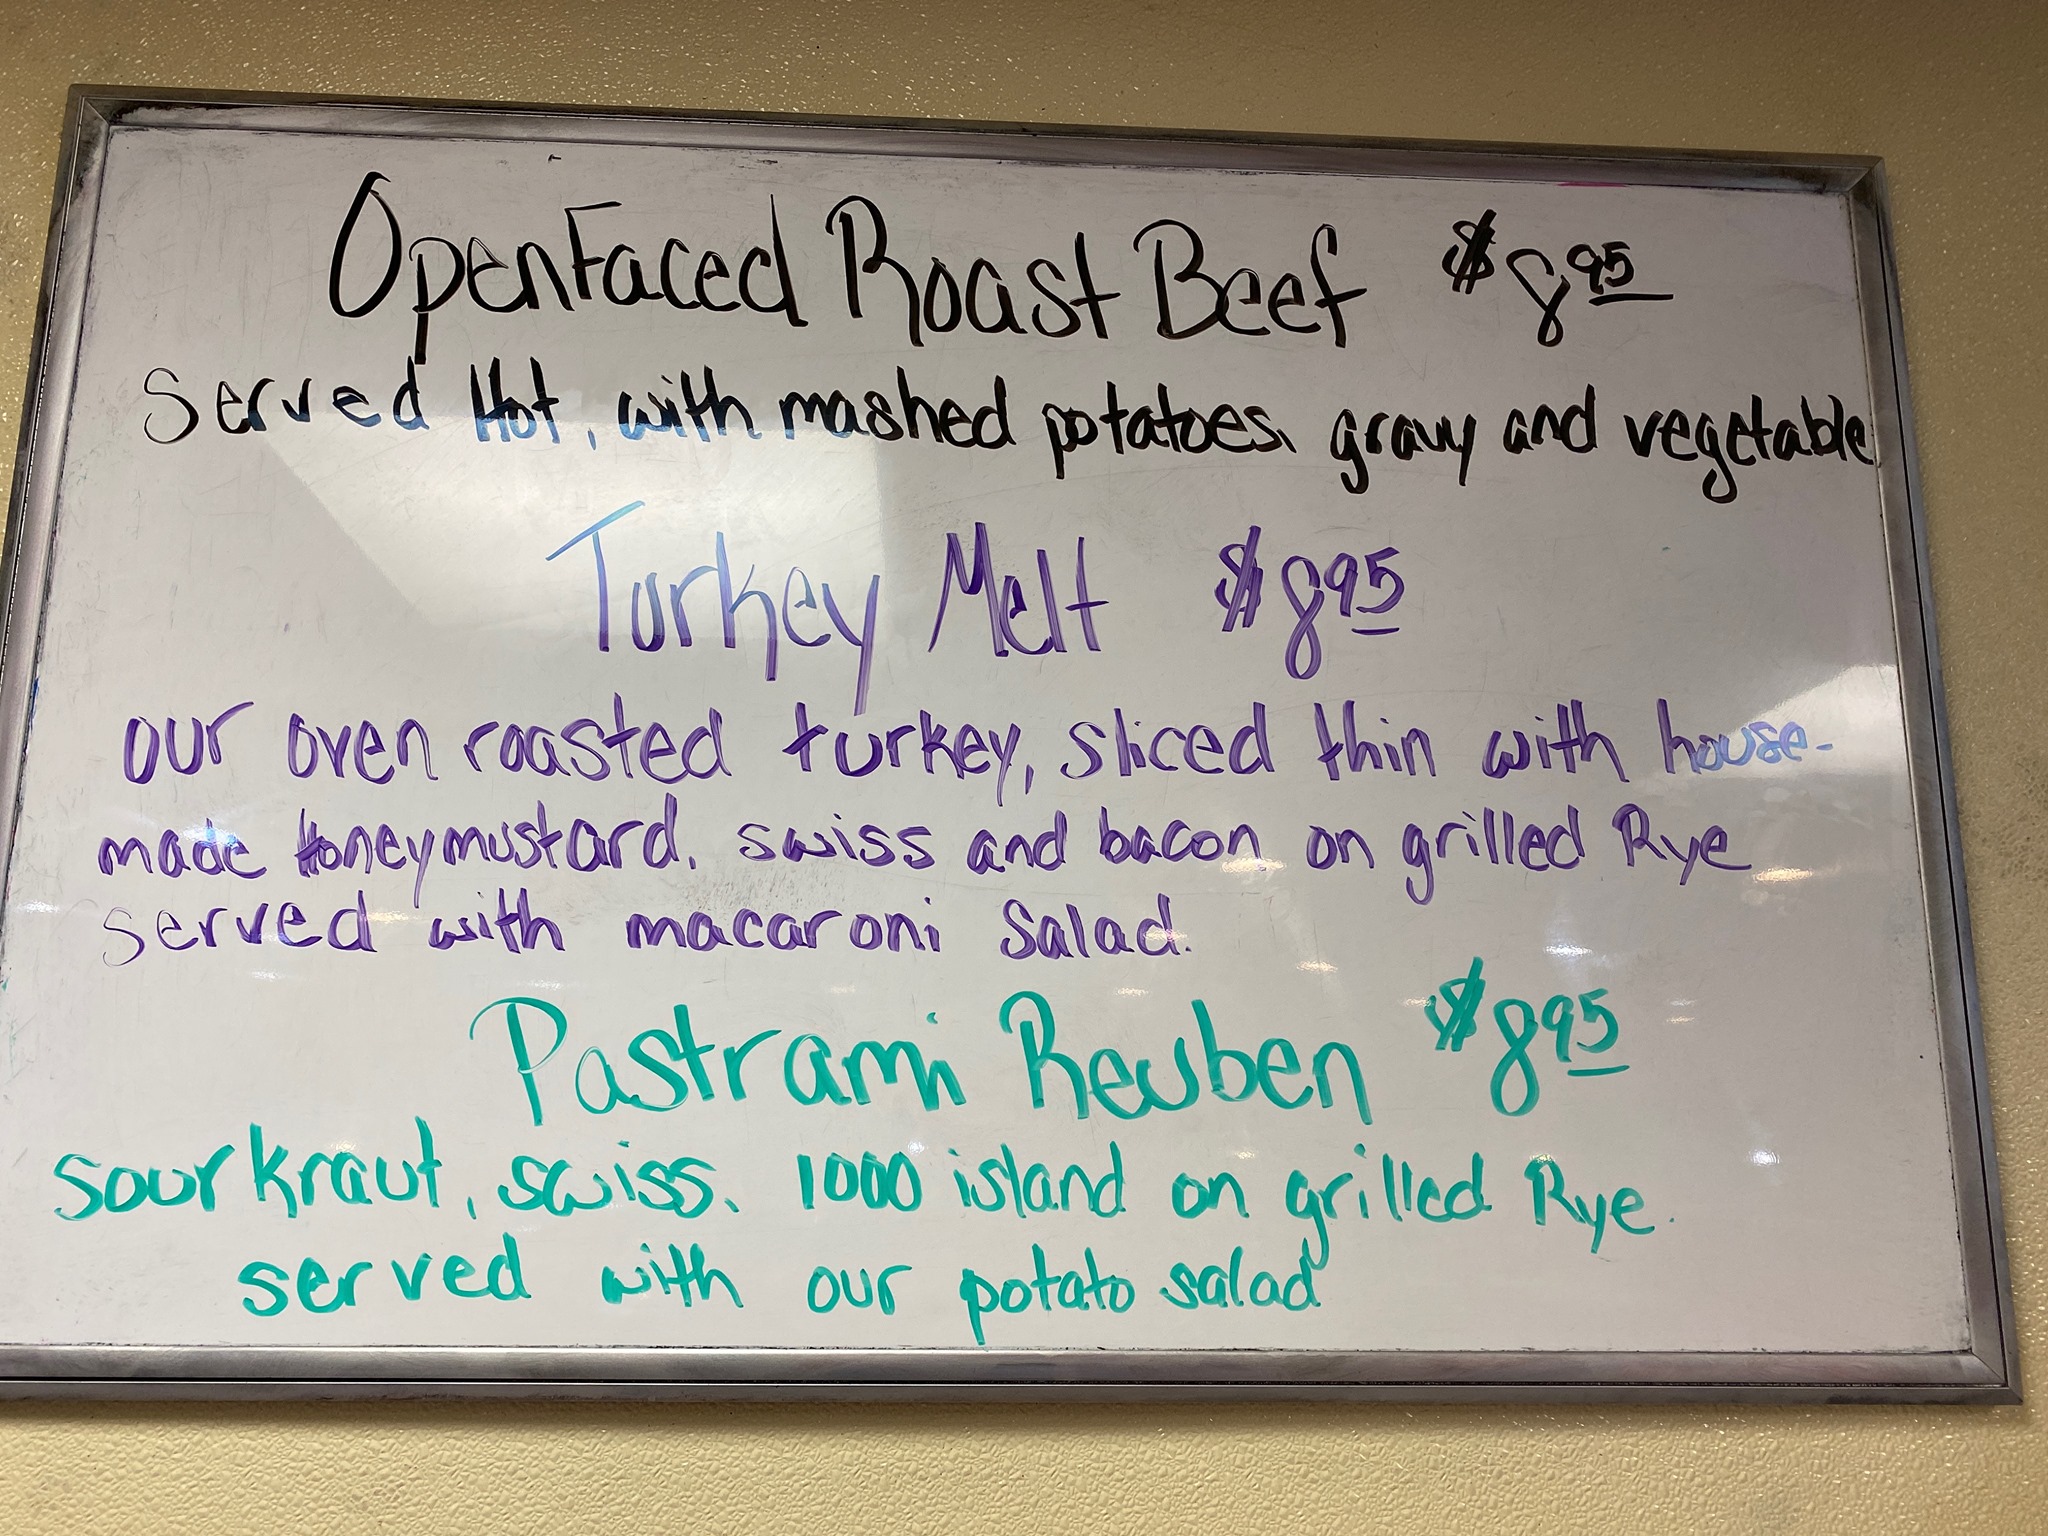 OpenFaced Roast Beef $8.95
Served Hot, with mashed potatoes, gravy and vegetable
Turkey Melt $8.95
our oven roasted turkey, sliced thin with house-
made Honeymustard, swiss and bacon on grilled Rye
served with macaroni salad.
Pastrami Reuben $8.95
sourkraut, swiss, 1000 island on grilled Rye.
served with our potato salad